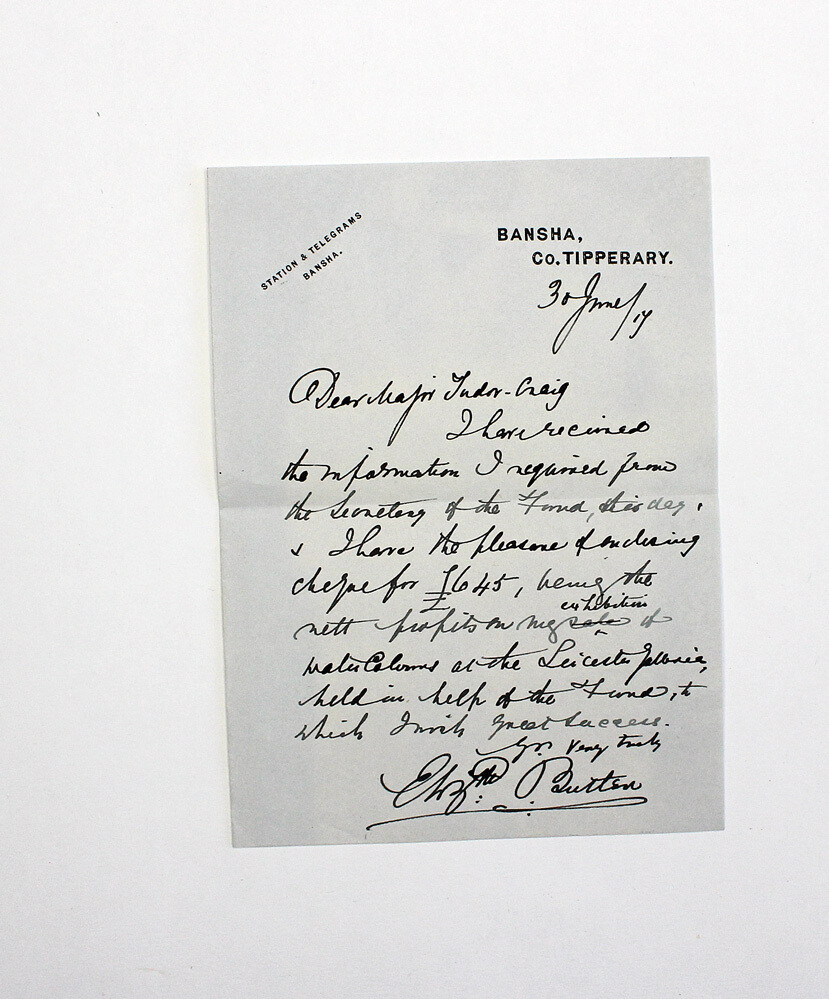 STATION & TELEGRAMS
BANSHA.
BANSHA,
Co. TIPPERARY.
30 June/17
Dear Major Tudor-Craig
I have received
the information I required from
the Secretary of the Fund, this day,
& I have the pleasure of enclosing
cheque for £645, being the
exhibition
nett profits on my sale of
water Colours at the Leicester Galleries,
held in help of the Fund, to
which I wish great success.
Yrs very truly
Elizth Butler